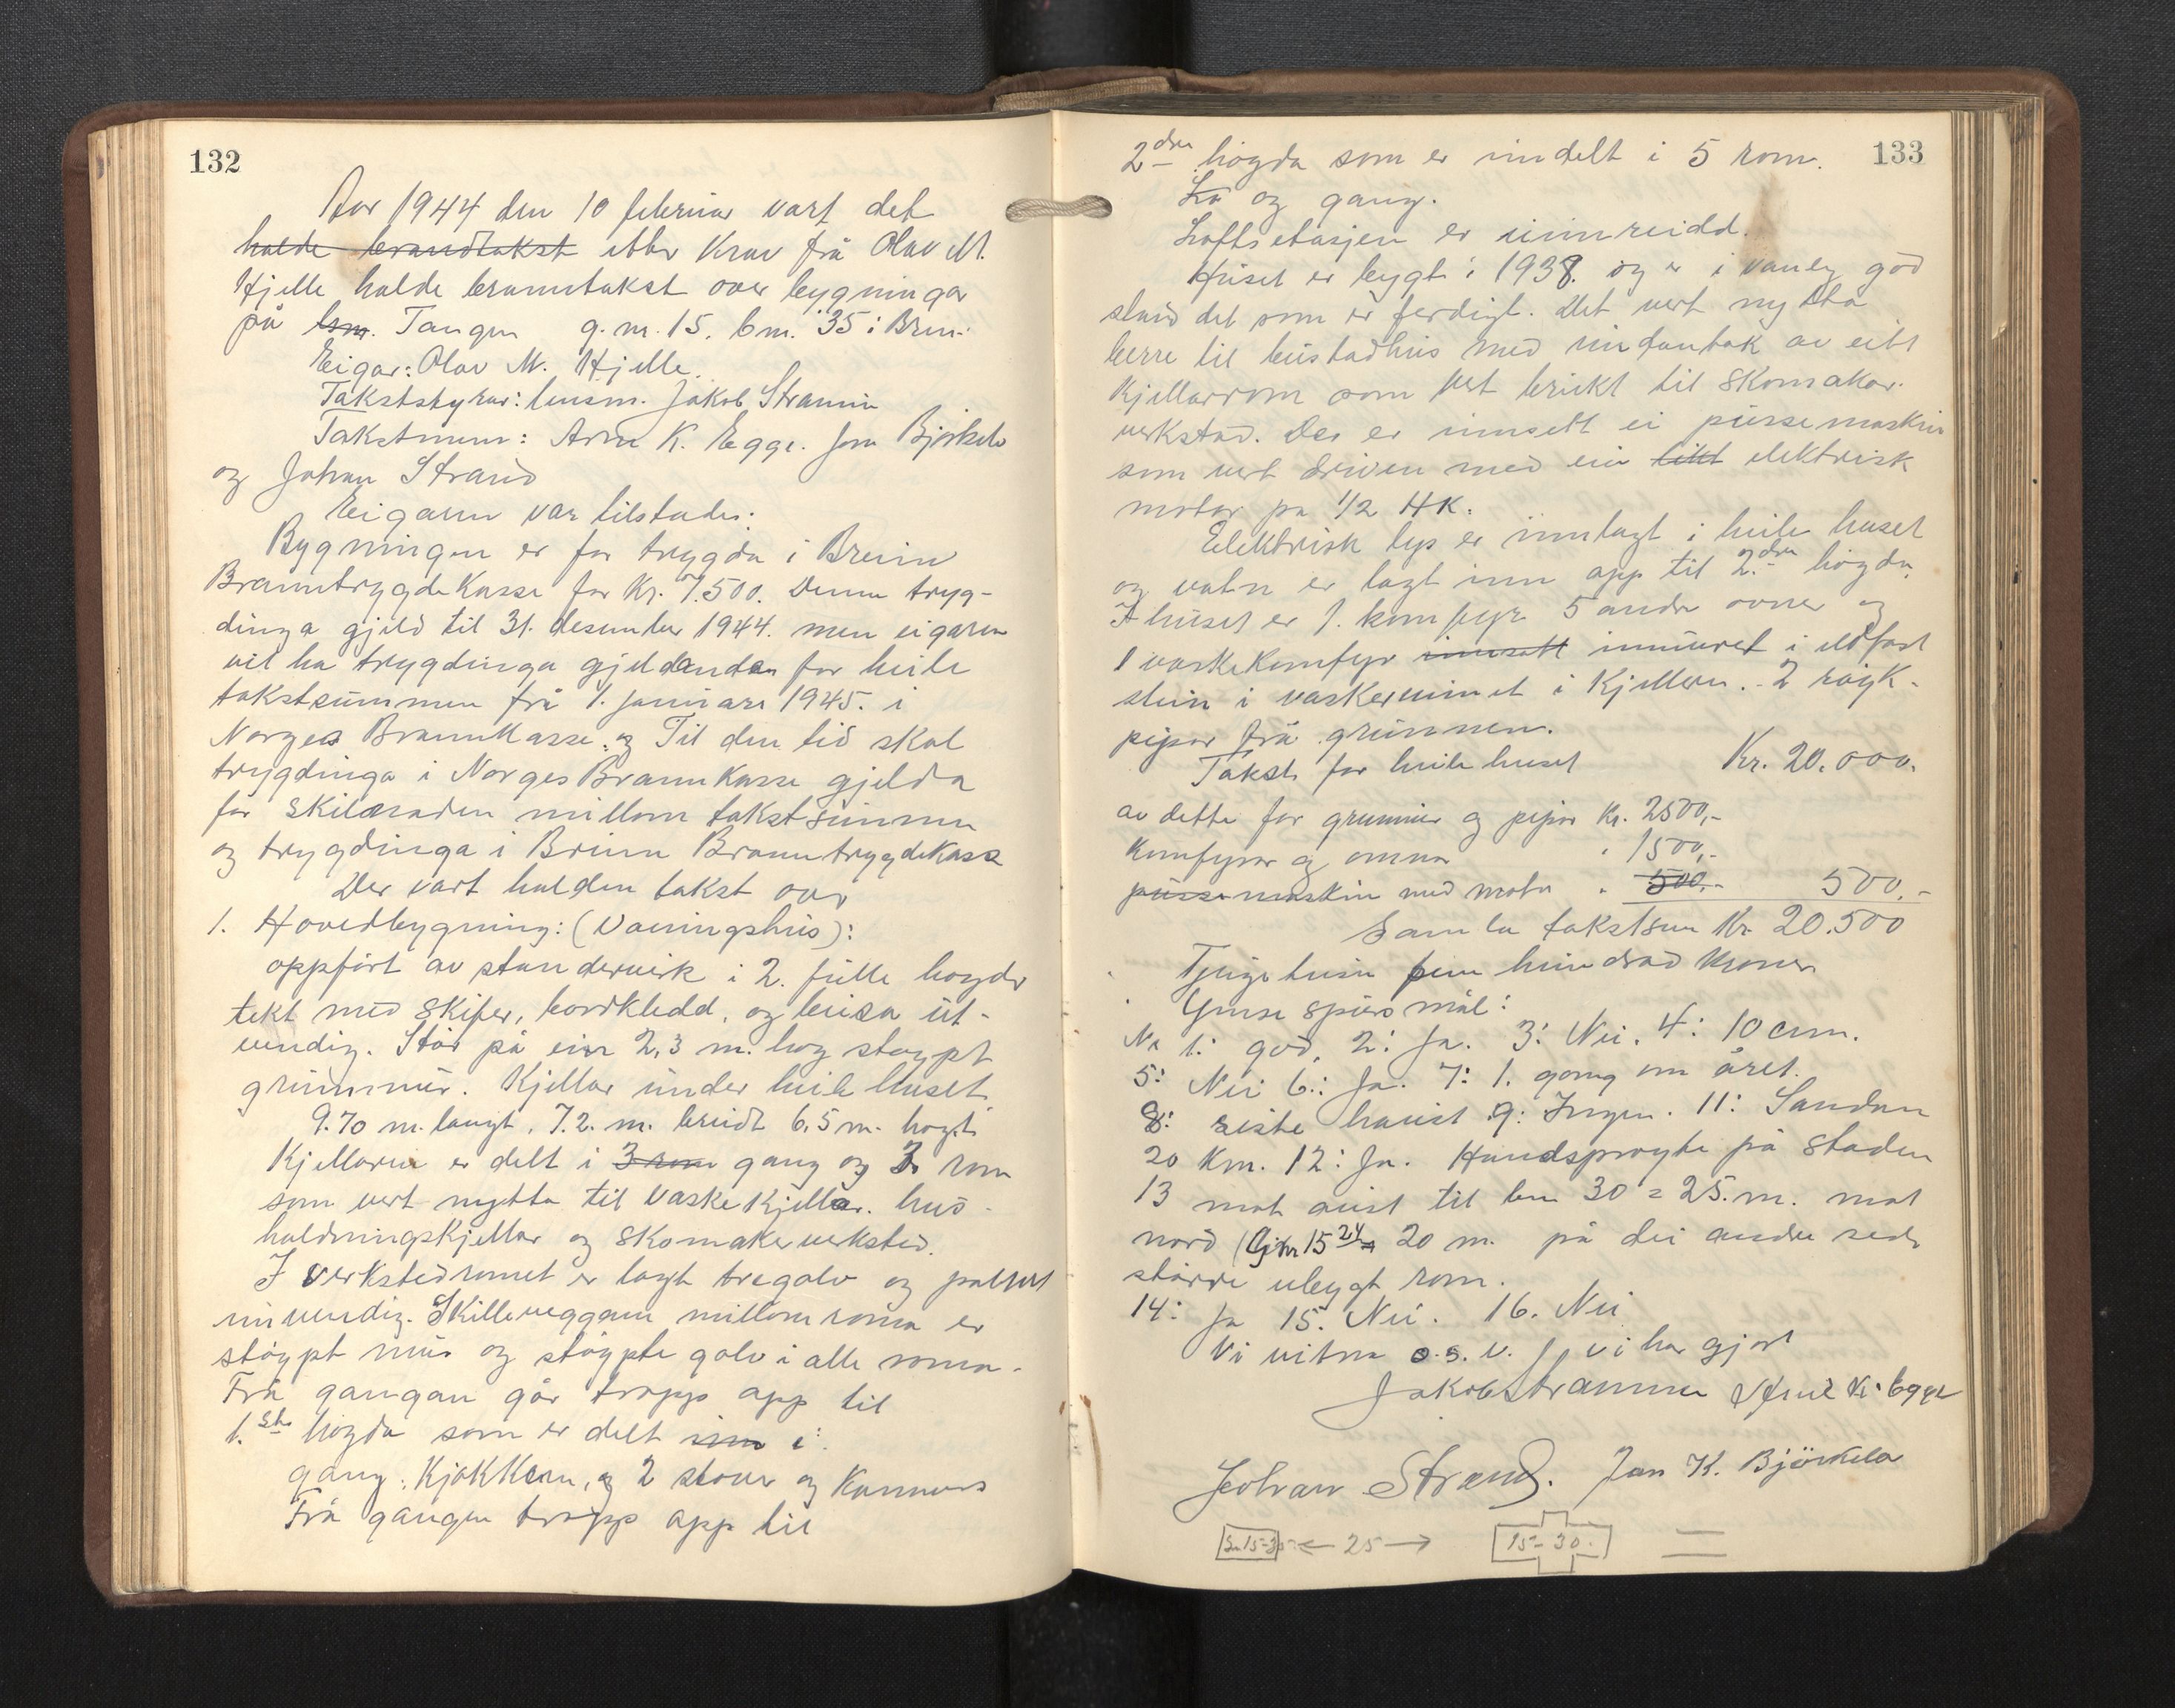 132
Aar 1944 den 10 februar vart det
halde branntakst etter Krav frå Olav M.
Hjelle halde branntakst over bygningar
på bsm. Tangen g.nr. 15. b.nr. 35 i Brein.
Eigar: Olav M. Hjelle.
Takststyrar: lensm. Jakob Stramme
Takstmenn: Arne K. Egge. Jon Bjørkelo
og Johan Strand
Eigaren var tilstades.
Bygningen er for trygda i Breim
BranntrygdeKasse for Kr. 7.500. Denne tryg-
dinga gjeld til 31. desember 1944. men eigaren
vil ha trygdinga gjeldandes for heile
takstsummen frå 1. januar 1945. i
Norges BrannKasse. og Til den tid skal
trygdinga i Norges BrannKasse gjelda
for skilnaden millom takstsummen
og trygdinga i Breim BranntrygdeKasse
Der vart halden takst over
1. Hovedbygning: (Vaaningshus):
oppført av standerverk i 2. fulle høgder
tekt med skifer, bordkledd, og beisa ut-
vendig. Står på ein 2,3 m. høg støypt
grunnmur. Kjellar under heile huset.
9.70 m. langt, 7.2. m. breidt 6,5 m. høgt
Kjellaren er delt i 3 rom gang og 3 rom
som vert nytta til vaskeKjellar. hus-
haldningsKjellar og skomakerverksted.
I verkstedromet er lagt tregolv og panelt
innvendig. Skilleveggane millom roma er
støypt mur og støypte golv i alle roma.
Frå gangen går trapp app til
1.ste høgda som er delt inn i:
gang. KjøkKen, og 2 stover og Kammers
Frå gangen trapp app til
133
2dre høgda som er inndelt i 5 rom.
Lo og gang.
Loftsetasjen er uinnreidd.
Huset er bygt i 1938. og er i vanleg god
stand det som er ferdigt. Det vert nytta
berre til bustadhus med undantak av eitt
Kjellarrom som vert brukt til skomakar-
verkstad. Der er innsett ei pussemaskin
som vert driven med ein likt elektrisk
motor på 1/2 HK.
Elektrisk lys er innlagt i heile huset
og vatn er lagt inn app til 2.dre høgda.
I huset er 1. komfyr 5 andre ovner og
1 vaskeKomfyr innsatt innmuret i eldfast
stein i vaskerummet i Kjelleren. 2 røyk-
pipor frå grunnen.
Takst for heile huset Kr. 20.000.
av dette for grunnmur og pipor Kr. 2500,-
Komfyrar og omnar " 1500,-
pussemaskin med motor " 500.- 500.-
Samla takstsum Kr 20.500
Tjuge tusen fem hundrad Kroner
Ymse spursmål:
Nr 1: god, 2: Ja. 3: Nei. 4: 10 cm.
5: Nei 6: Ja. 7: 1. gong om året.
8: siste haust 9: Ingen. 11: Sandane
20 Km. 12: Ja. Handsprøyte på staden
13 mot aust til bnr 30 = 25. m. mot
nord (Gjnr 15 24 = 20 m. på dei andre sede
større ubygt rom.
14: Ja 15. Nei. 16. Nei
Vi vitna o.s.v. vi har gjort
Jakob Stramme Arne K. Egge
Johan Strand. Jon K. Björkelo
15-35 ← 25 → 15-30.